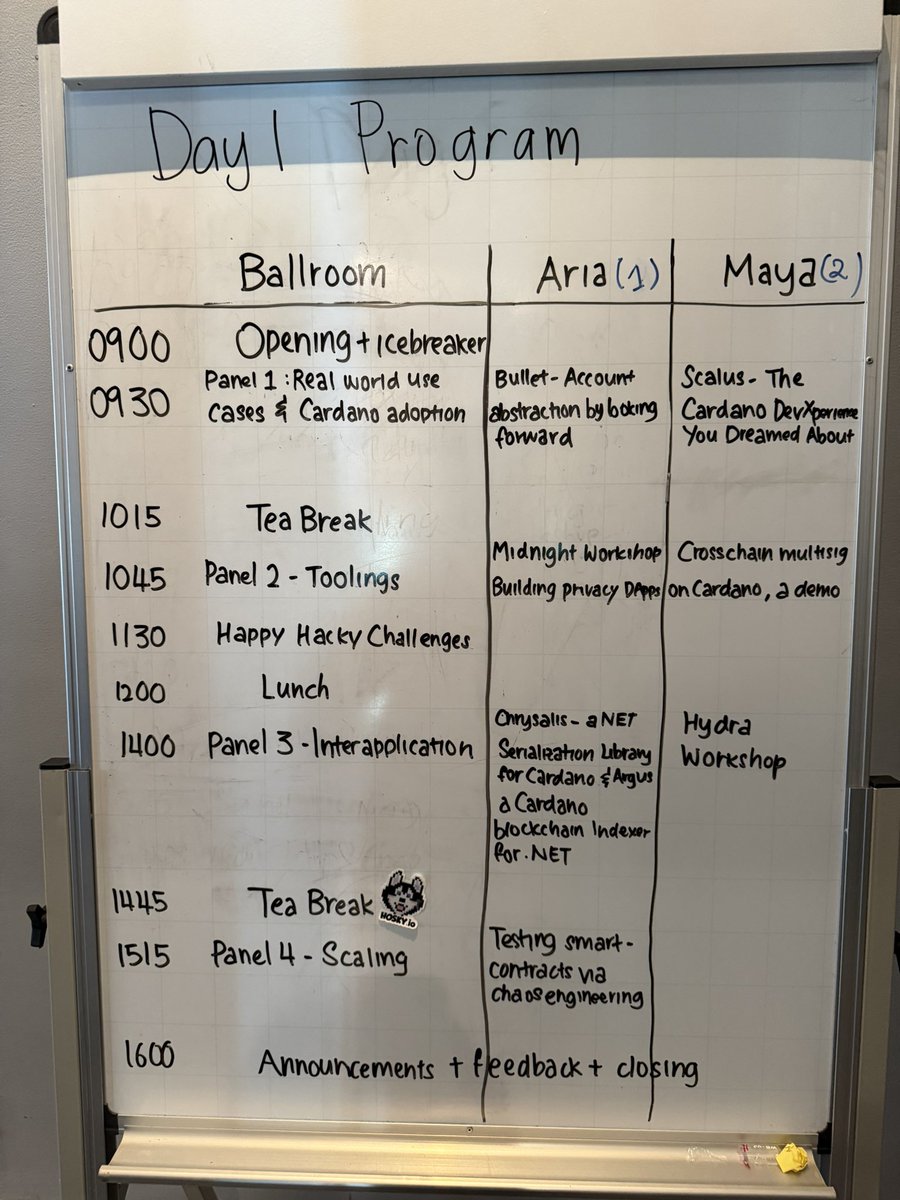 Day 1 Program
Ballroom Aria (1) Maya (2)
0900 Opening + Icebreaker
0930
Panel 1 : Real world use
cases & Cardano adoption
Bullet - Account
abstraction by looking
forward
Scalus - The
Cardano DevXperience
You Dreamed About
1015 Tea Break
1045 Panel 2 - Toolings
Midnight Workshop
Building privacy DApps
Crosschain multisig
on Cardano, a demo
1130 Happy Hacky Challenges
1200 Lunch
1400 Panel 3 - Interapplication
Chrysalis - a NET
Serialization Library
for Cardano & Argus
a Cardano
blockchain Indexer
for .NET
Hydra
Workshop
1445 Tea Break
HOSKY.io
1515 Panel 4 - Scaling
Testing smart-
contracts via
chaos engineering
1600 Announcements + feedback + closing